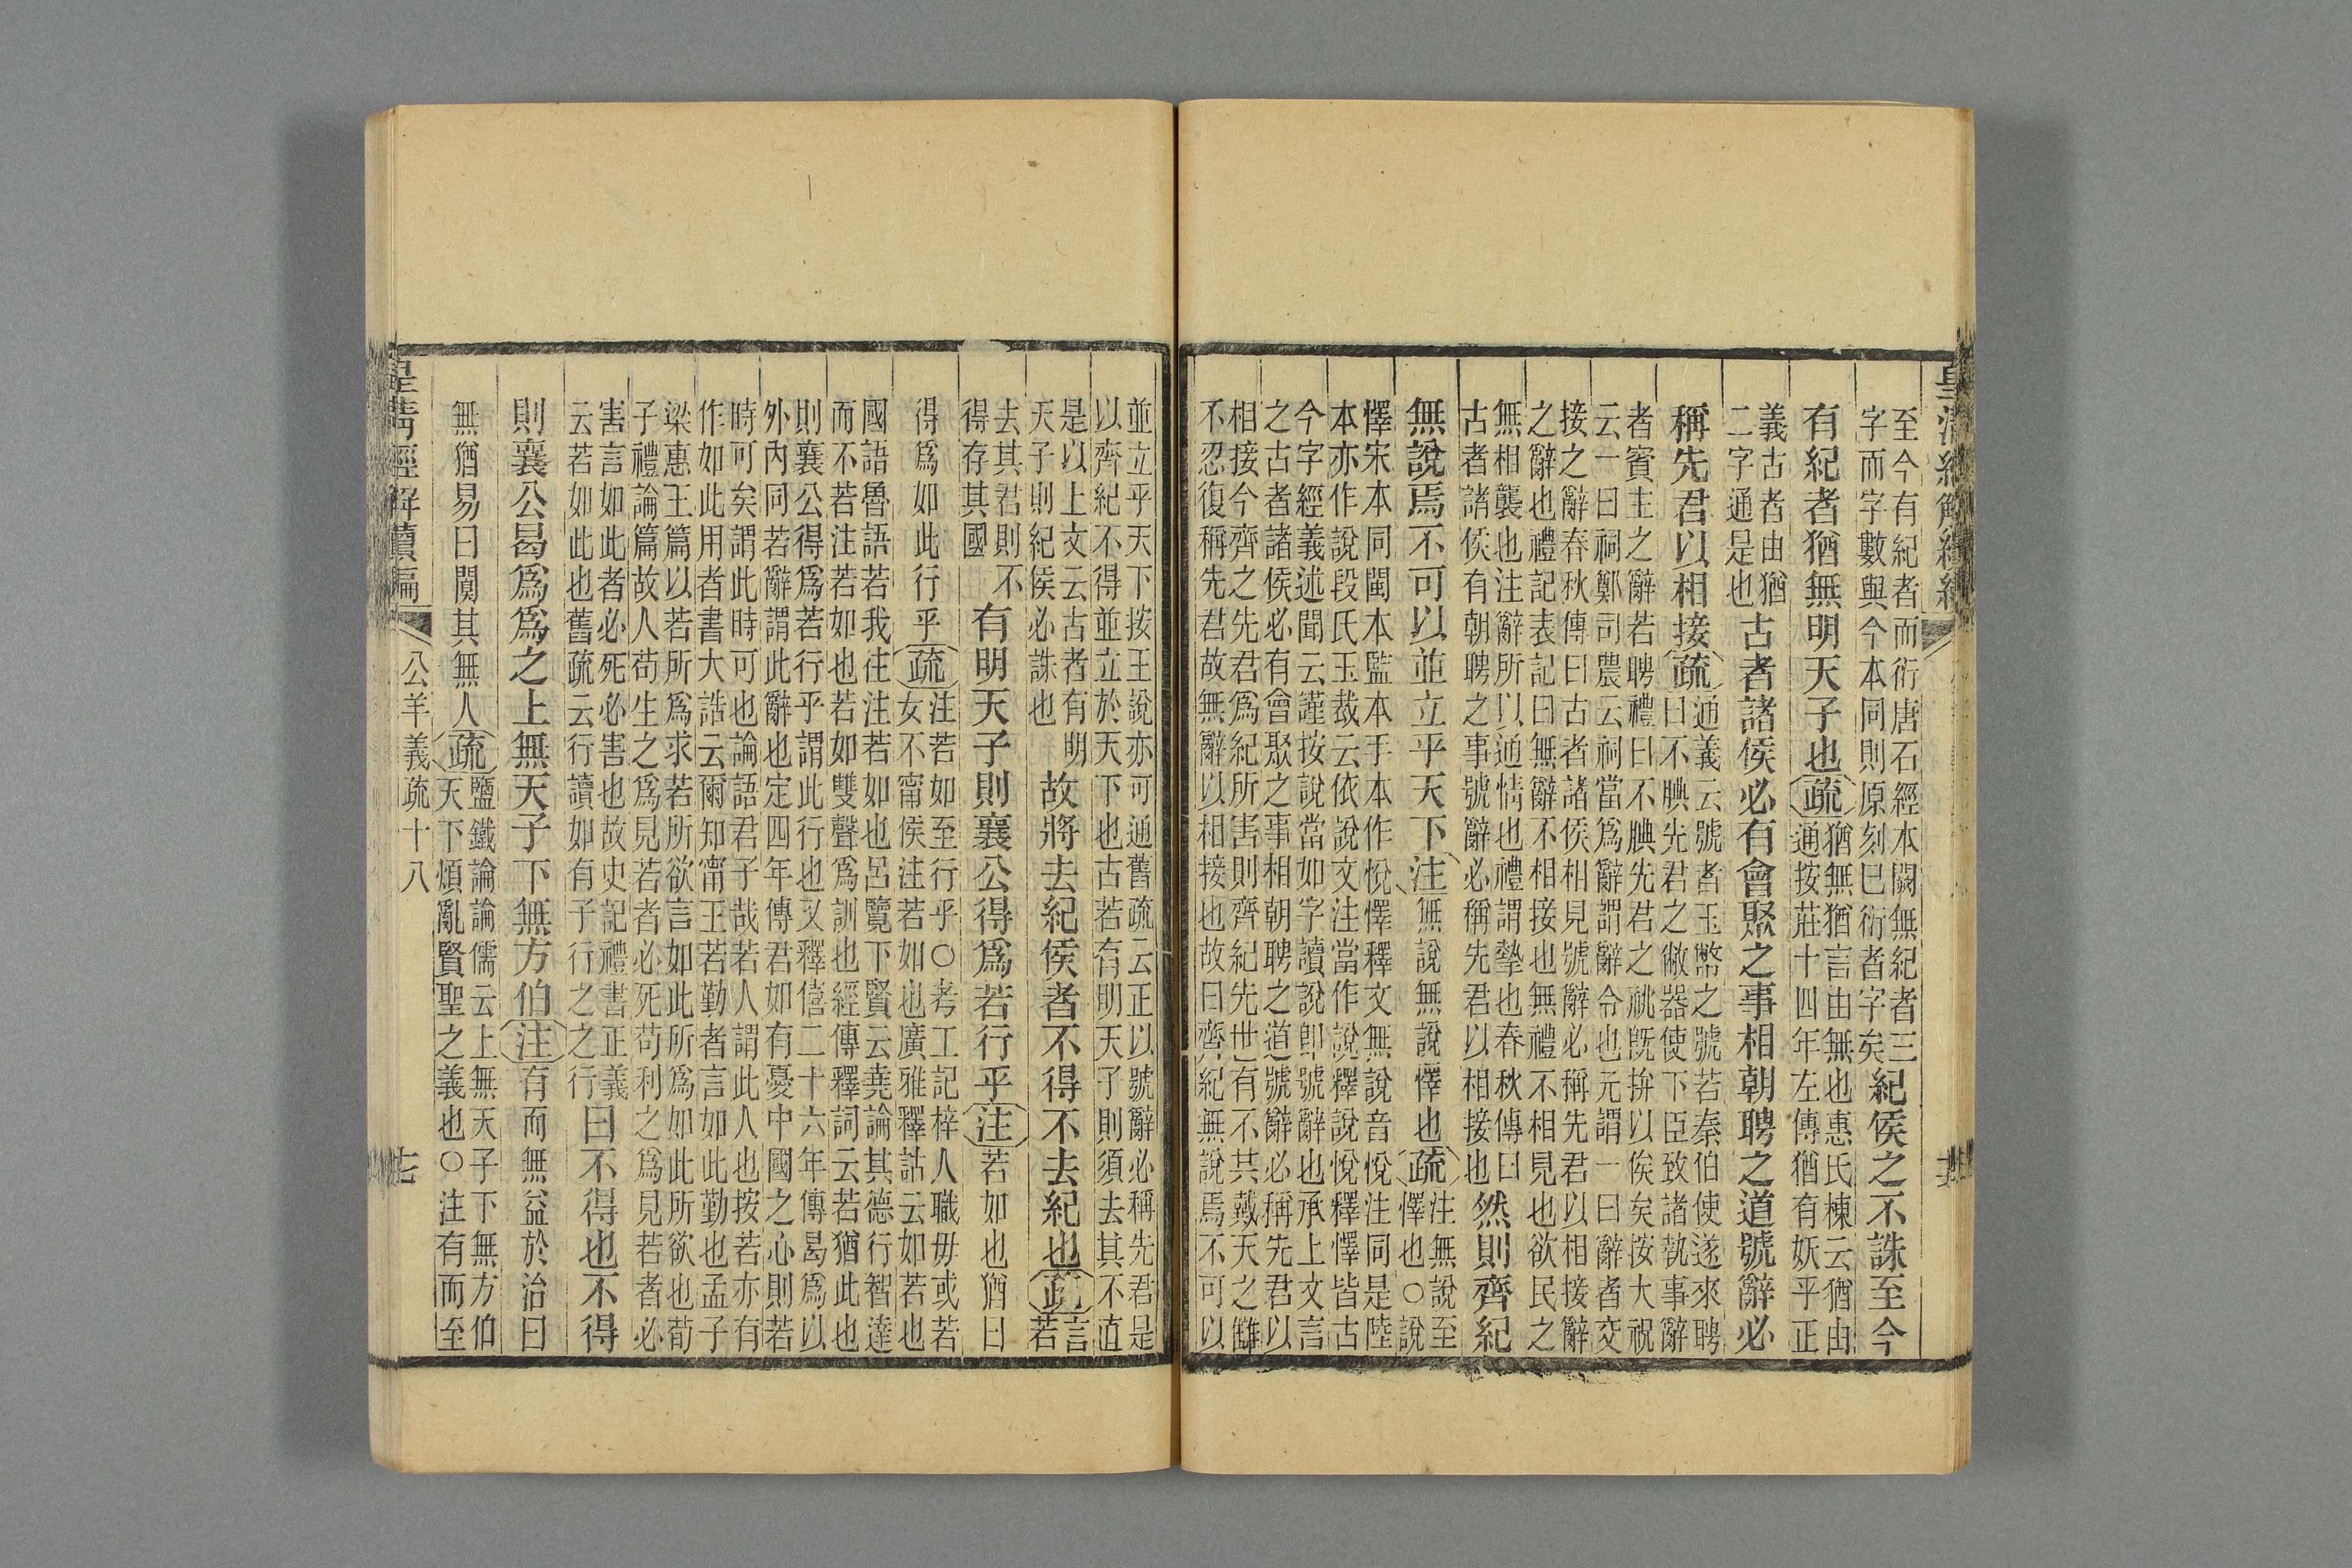 皇清經解續編
至今有紀者而衍唐石經本闕無紀者三
字而字數與今本同則原刻巳衍者字矣
紀侯之不誅至今
有紀者猶無明天子也
疏
猶無猶言由無也惠氏棟云猶由
通按莊十四年左傳猶有妖乎正
義古者由猶
二字通是也
古者諸侯必有會聚之事相朝聘之道號辭必
稱先君以相接
疏
通義云號者玉幣之號若秦伯使遂來聘
曰不腆先君之敝器使下臣致諸執事辭
者賓主之辭若聘禮曰不腆先君之祧既拚以俟矣按大祝
云一曰祠鄭司農云祠當爲辭謂辭令也元謂一曰辭者交
接之辭春秋傳曰古者諸侯相見號辭必稱先君以相接辭
之辭也禮記表記曰無辭不相接也無禮不相見也欲民之
無相褻也注辭所以通情也禮謂摯也春秋傳曰
古者諸侯有朝聘之事號辭必稱先君以相接也
然則齊紀
無說焉不可以並立乎天下
注
無說無說懌也
疏
注無說至
懌也○說
懌宋本同閩本監本手本作悅懌釋文無說音悅注同是陸
本亦作說段氏玉裁云依說文注當作說釋說悅釋懌皆古
今字經義述聞云謹按說當如字讀說卽號辭也承上文言
之古者諸侯必有會聚之事相朝聘之道號辭必稱先君以
相接今齊之先君爲紀所害則齊紀先世有不其戴天之讎
不忍復稱先君故無辭以相接也故曰齊紀無說焉不可以
並立乎天下按王說亦可通舊疏云正以號辭必稱先君是
以齊紀不得並立於天下也古若有明天子則須去其不直
是以上文云古者有明
天子則紀侯必誅也
故將去紀侯者不得不去紀也
疏
言
若
去其君則不
得存其國
有明天子則襄公得爲若行乎
注
若如也猶曰
得爲如此行乎
疏
注若如至行乎○考工記梓人職毋或若
女不甯侯注若如也廣雅釋詁云如若也
國語魯語若我往注若如也呂覽下賢云堯論其德行智達
而不若注若如也若如雙聲爲訓也經傳釋詞云若猶此也
則襄公得爲若行乎謂此行也又釋僖二十六年傳曷爲以
外內同若辭謂此辭也定四年傳君如有憂中國之心則若
時可矣謂此時可也論語君子哉若人謂此人也按若亦有
作如此用者書大誥云爾知甯王若勤者言如此勤也孟子
梁惠王篇以若所爲求若所欲言如此所爲如此所欲也荀
子禮論篇故人苟生之爲見若者必死苟利之爲見若者必
害言如此者必死必害也故史記禮書正義
云若如此也舊疏云行讀如有子行之之行
曰不得也不得
則襄公曷爲爲之上無天子下無方伯
注
有而無益於治曰
無猶易曰闃其無人
疏
鹽鐵論論儒云上無天子下無方伯
天下煩亂賢聖之義也○注有而至
皇清經解續編
公羊義疏十八